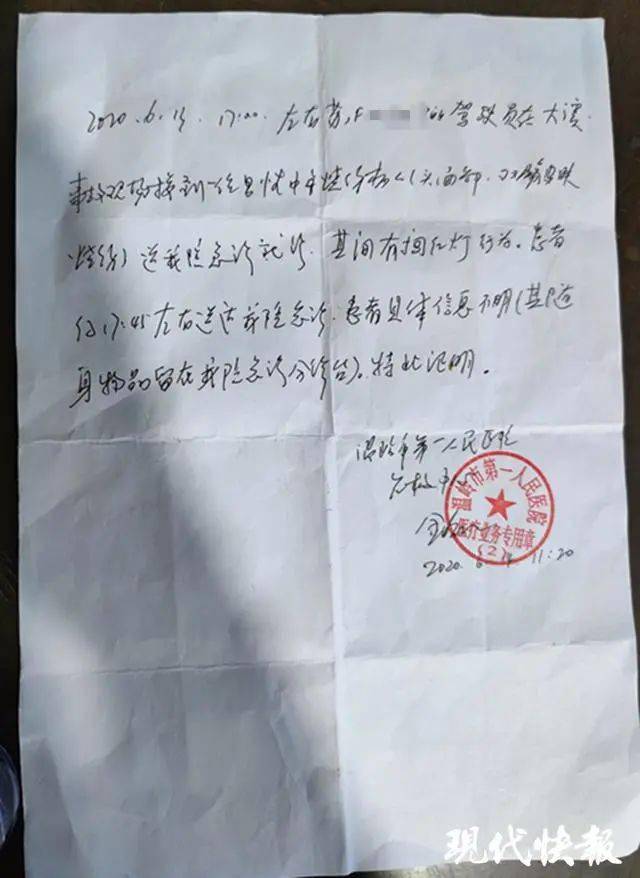 2020.6.13. 17:00 左右苏F 的驾驶员在大溪
事故现场接到一位昏迷中年烧伤病人(头面部、双
烧伤)送我院急诊就诊.其间有闯红灯行为.患者
约17:45左右送达我院急诊.患者具体信息不明(其随
身物品留在我院急诊分诊台)。特此证明。
温岭市第一人民医院
急救中心
温岭市第一人民医院
医疗业务专用章
(2)
2020. 6. 11:20
现代快报